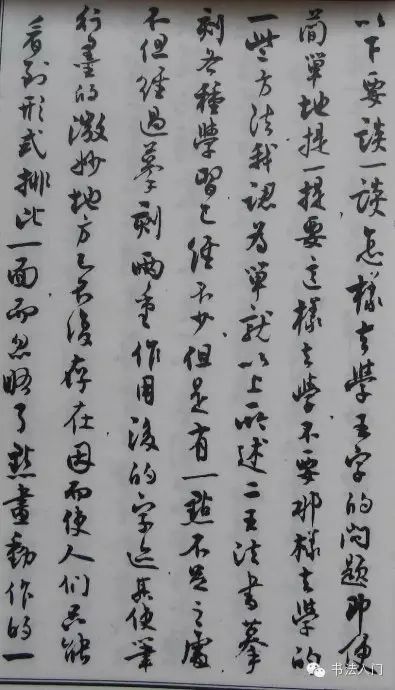 以下要談一談怎樣去學王字的问題即使
簡單地提一提要這樣去學不要那樣去學的
一些方法我認為單就以上所述二王法書摹
刻各種學習已經不少但是有一點不足之處
不但經過摹刻兩重作用後的字迹其使筆
行墨的微妙地方已不復存在因而使人们只能
看到形式排比一面而忽略了點畫動作的一
书法入门